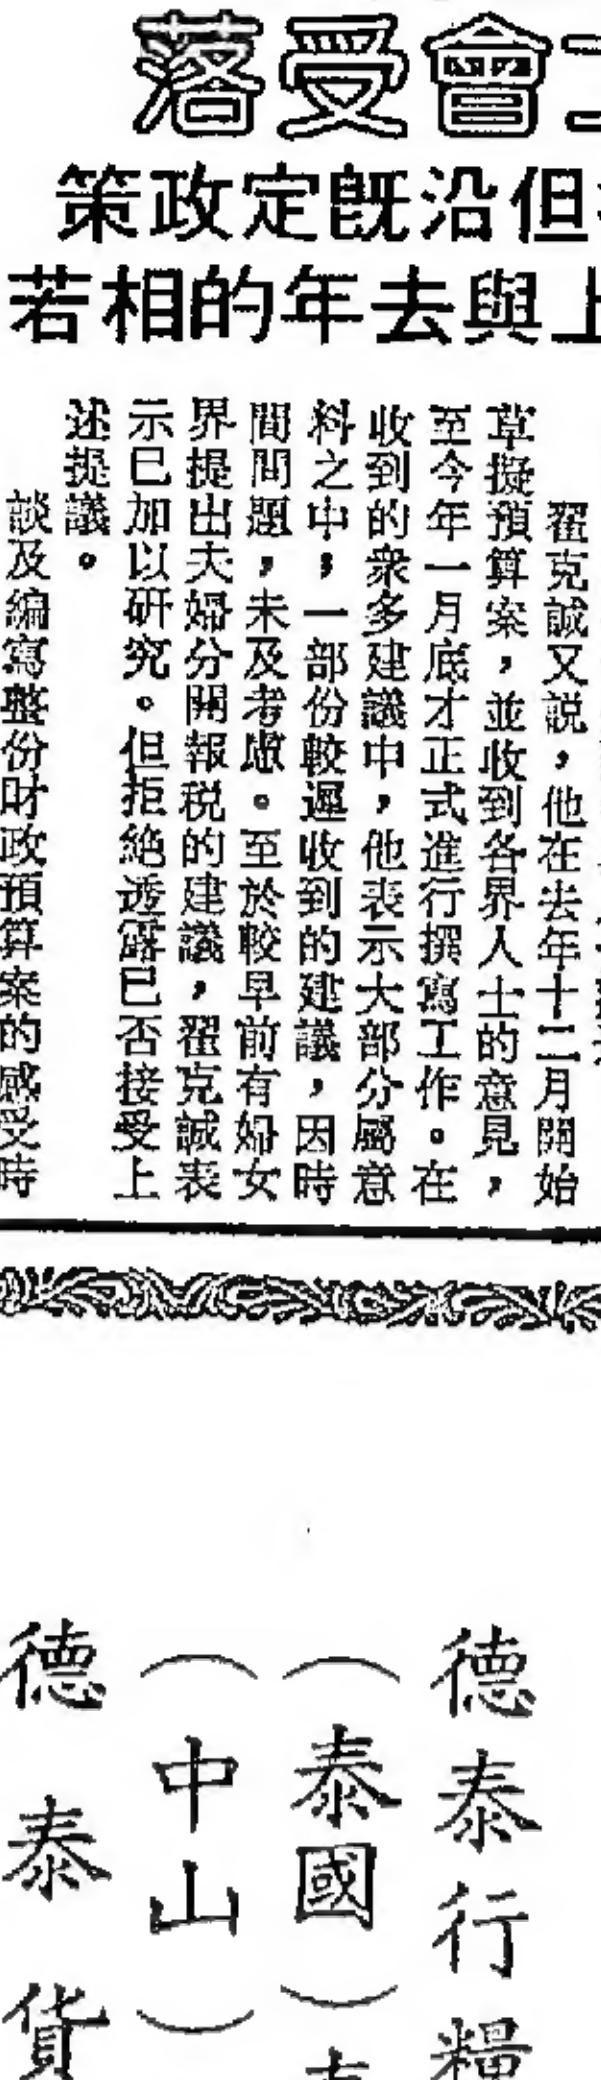 會受落
但沿既定政策
上與去年的相若
翟克誠又説，他在去年十二月開始
草擬預算案，並收到各界人士的意見，
至今年一月底才正式進行撰寫工作。在
收到的衆多建議中，他表示大部分屬意
料之中；一部份較遲收到的建議，因時
間問題，未及考慮。至於較早前有婦女
界提出夫婦分開報税的建議，翟克誠表
示已加以研究。但拒絶透露已否接受上
述提議。
談及編寫整份財政預算案的感受時
德泰行糧
（泰國）
（中山）
德泰貨